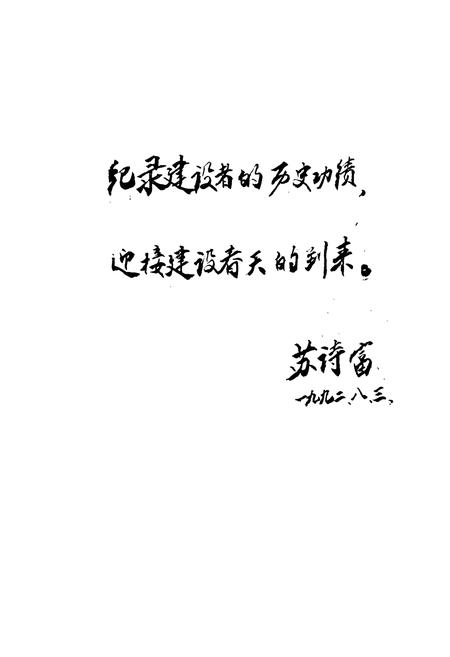 纪录建设者的历史功绩,
迎接建设春天的到来。
苏诗富
一九九二、八、三、